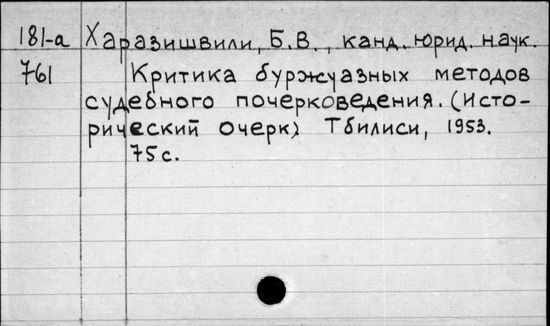 181-а Харазишвили, Б.В., канд. юрид. наук.
761 Критика буржуазных методов
судебного почерковедения. (Исто-
рический очерк) Тбилиси, 1953.
75с.